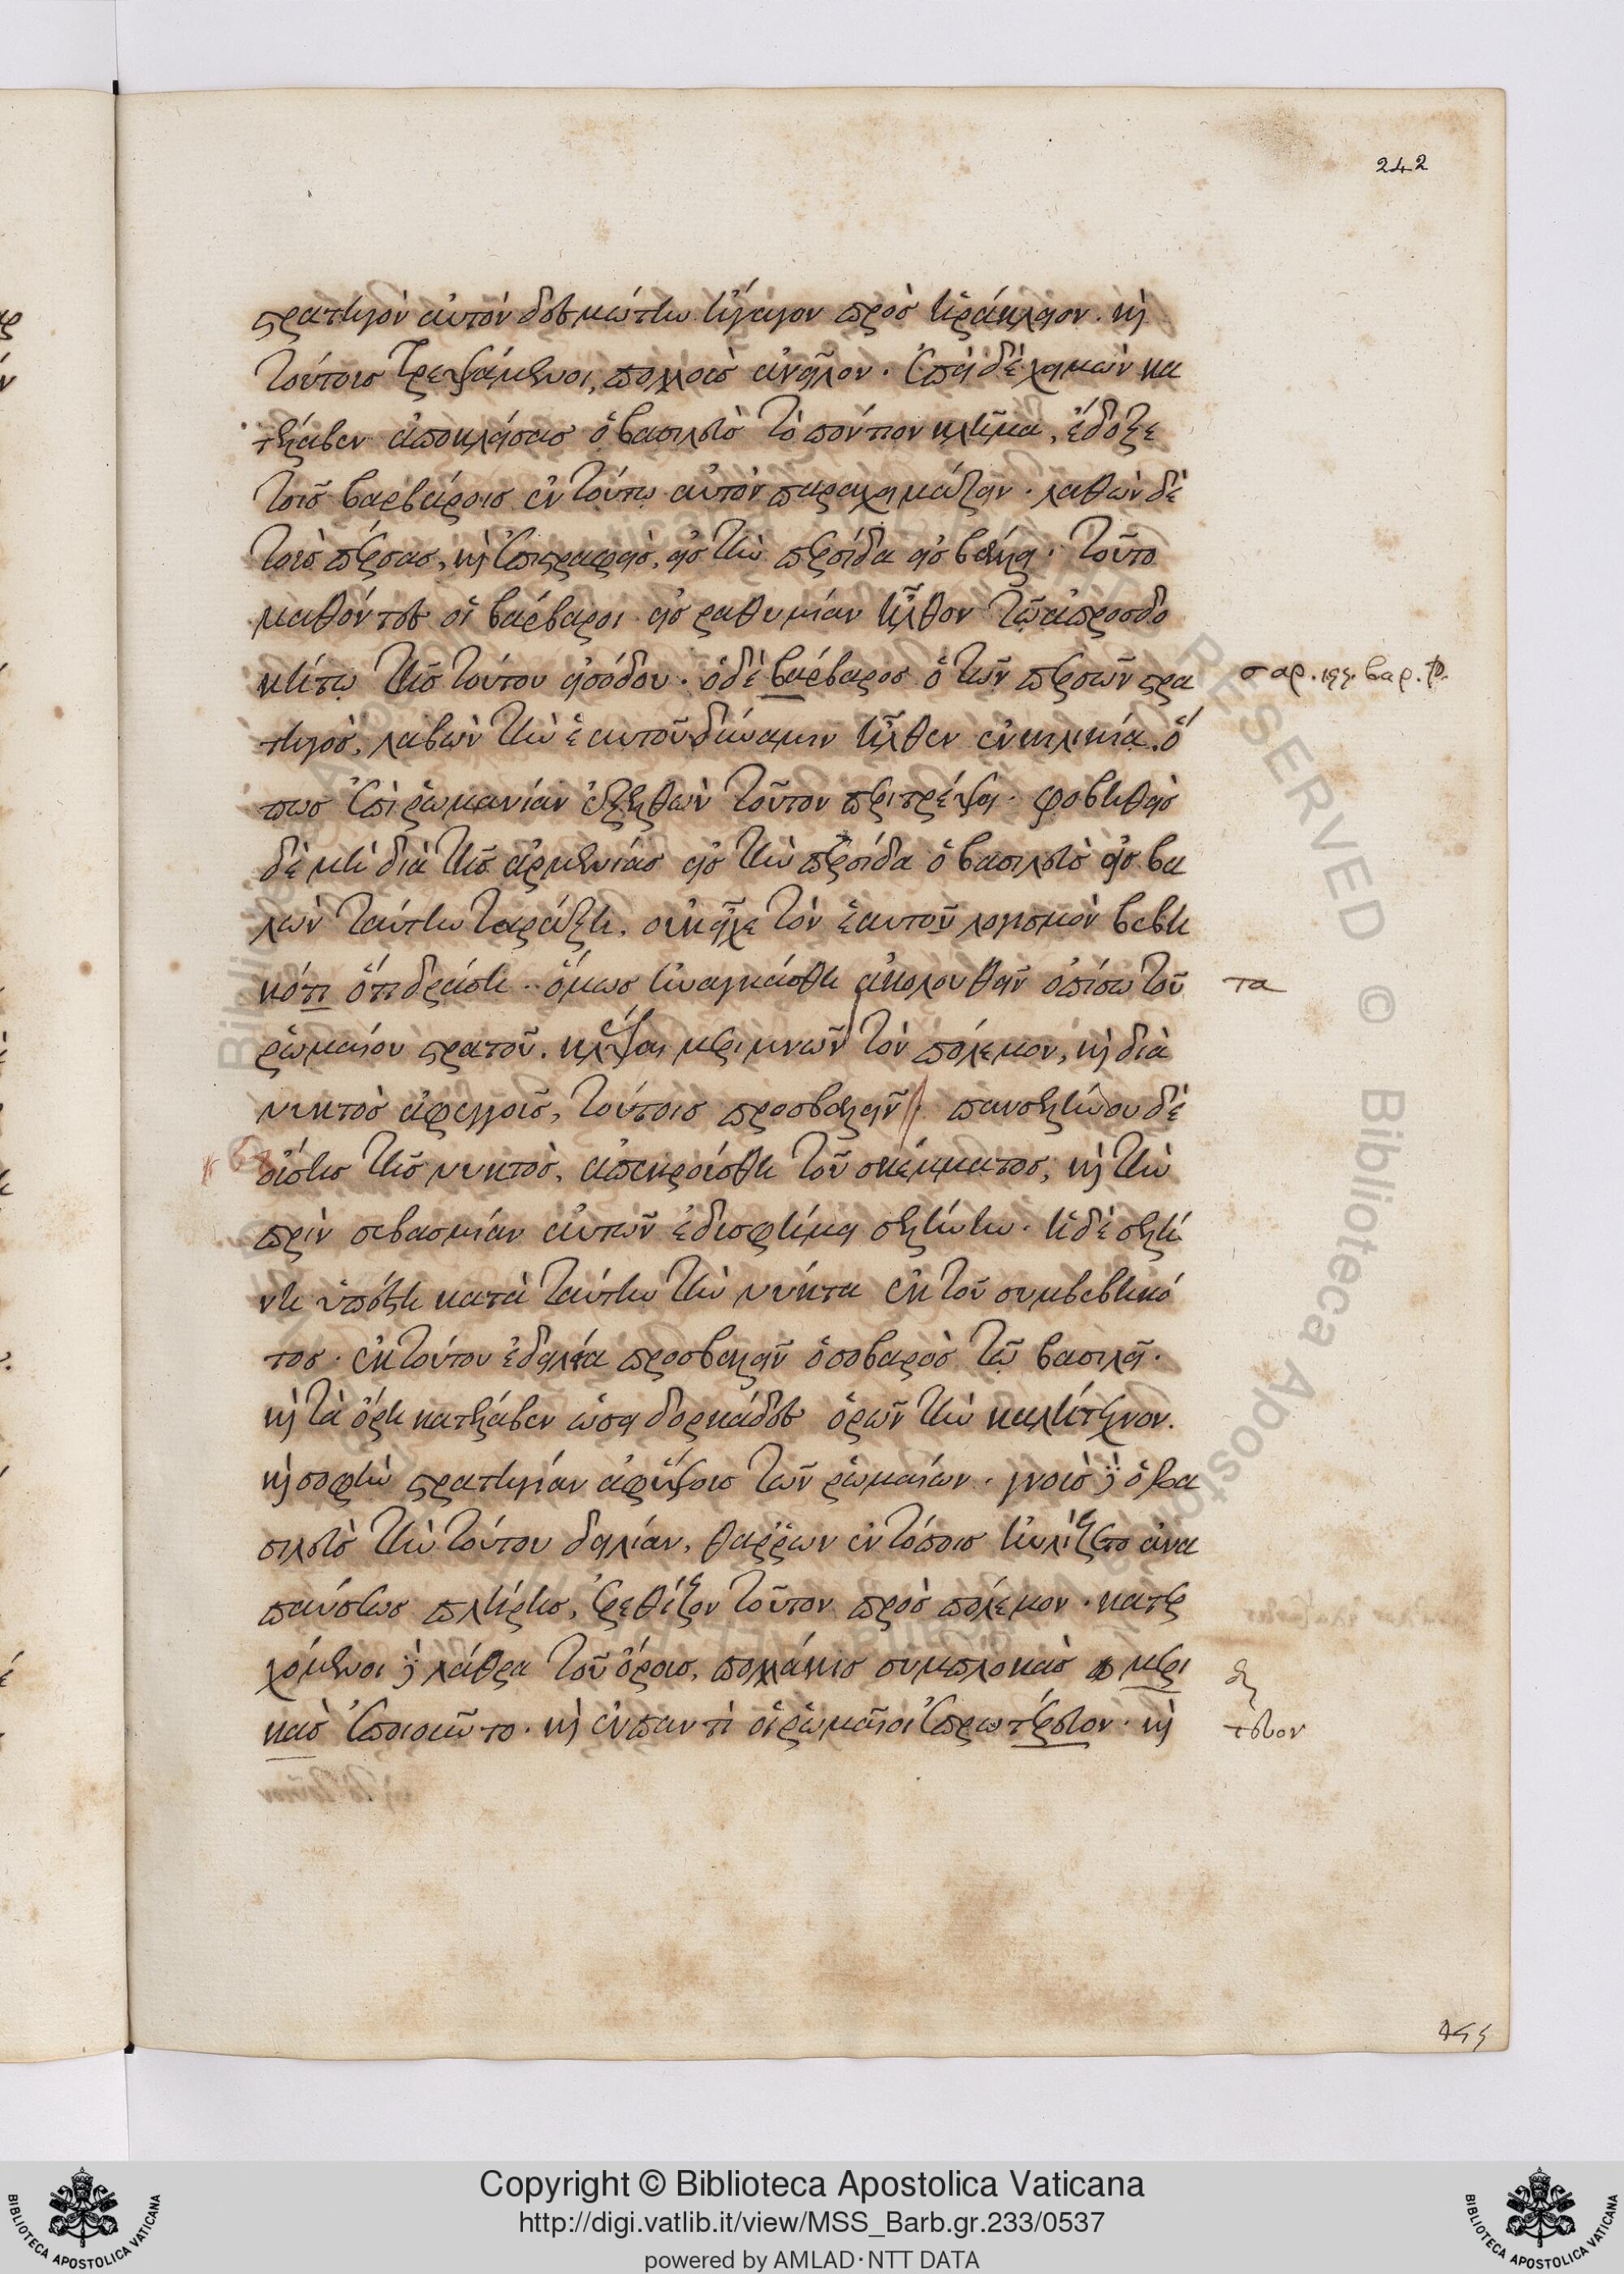 242
στρατηγὸν αὐτὸν δεσμώτην ἤγαγον πρὸς ἡράκλειον. καὶ
τούτους τρεψάμενοι, πολλοὺς ἀνεῖλον. ἐπεὶ δὲ χειμὼν κα
τέλαβεν ἀποκλείσας ὁ βασιλεὺς τὸ πόντιον κλῆμα, ἔδοξε
τοῖς βαρβάροις ἐν τούτῳ αὐτὸν παραχειμάζειν. λαθὼν δὲ
τοὺς πέρσας, καὶ ἐπιστραφεὶς, εἰς τὴν περσίδα εἰσβάλλει. τοῦτο
μαθόντες οἱ βάρβαροι εἰς ραθυμίαν ἦλθον τῷ ἀπροσδο
κήτῳ τῆς τούτου εἰσόδου. ὁ δὲ βάρβαρος ὁ τῶν περσῶν στρα
σαρ. ισ. βαρ.
τηγὸς, λαβὼν τὴν ἑαυτοῦ δύναμιν ἦλθεν ἐν κιλικίᾳ. ὅ
πως ἐπὶ ῥωμανίαν ἐξελθὼν τοῦτον περιτρέψει. φοβηθεὶς
δὲ μὴ διὰ τῆς ἀρμενίας εἰς τὴν περσίδα ὁ βασιλεὺς εἰσβα
λὼν ταύτην ταράξῃ, οὐκ εἶχε τὸν ἑαυτοῦ λογισμὸν βεβη
κότι ὅτι δράσῃ. ὅμως ἠναγκάσθη ἀκολουθεῖν ὀπίσω τοῦ
τα
ῥωμαίου στρατοῦ. κλέψαι μεριμνῶν τὸν πόλεμον, καὶ διὰ
νυκτὸς ἀφεγγοῦς, τούτοις προσβαλεῖν. πανσελήνου δὲ
οὔσης τῆς νυκτὸς, ἀπεκρούσθη τοῦ σκέμματος, καὶ τὴν
πρὶν σεβασμίαν αὐτῶν ἐδυσφήμει σελήνην. ἡ δὲ σελή
νη ὑπέστη κατὰ ταύτην τὴν νύκτα ἐκ τοῦ συμβεβηκό
τος. ἐκ τούτου ἐδειλία προσβαλεῖν ὁ σοβαρὸς τῷ βασιλεῖ.
καὶ τὰ ὄρη κατέλαβεν ὡσεὶ δορκάδες ὁρῶν τὴν καλλίτεχνον.
καὶ σοφὴν στρατηγίαν ἀφ' ὕψους τῶν ῥωμαίων. γνοὺς δὲ ὁ βα
σιλεὺς τὴν τούτου δειλίαν, θαρρῶν ἐν τόποις ηὐλίζετο ἀνα
παύσεως πλήρης, ἐρεθίζων τοῦτον πρὸς πόλεμον. κατερ
χόμενοι δὲ λάθρα τοῦ ὄρους, πολλάκις συμπλοκὰς μερι
κὰς ἐποιοῦντο. καὶ ἐν παντὶ οἱ ῥωμαῖοι ἐπρωτέρευον. καὶ
τευον